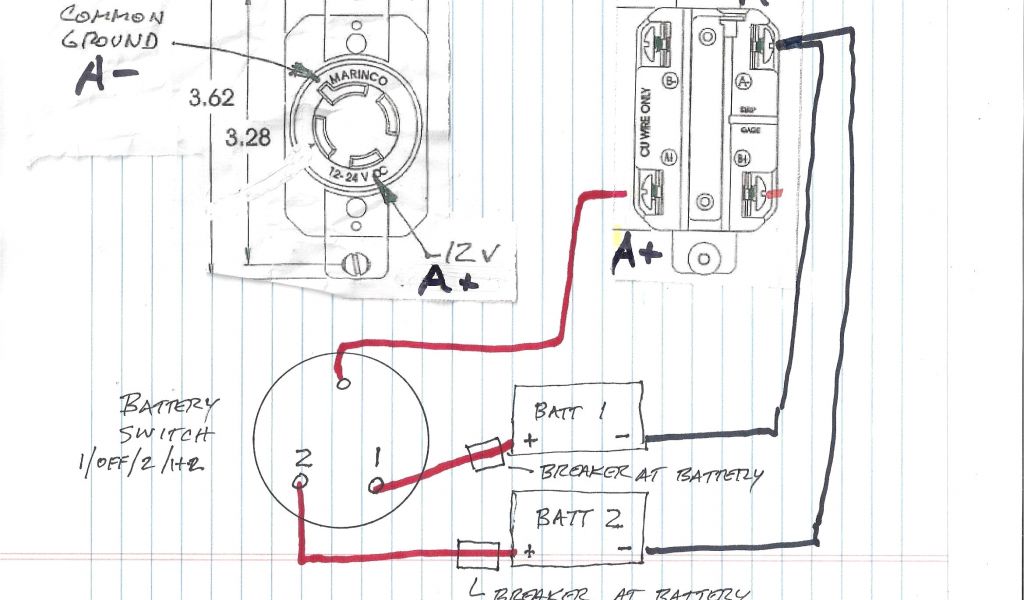 COMMON
GROUND
A-
3.62
3.28
MARINCO
12-24 V DC
-12 V
A+
B-
A-
CU WIRE ONLY
STRIP
GAGE
A+
B+
A+
BATTERY
SWITCH
1/OFF/2/1+2
2
1
BATT 1
+
-
BREAKER AT BATTERY
BATT 2
+
-
BREAKER AT BATTERY